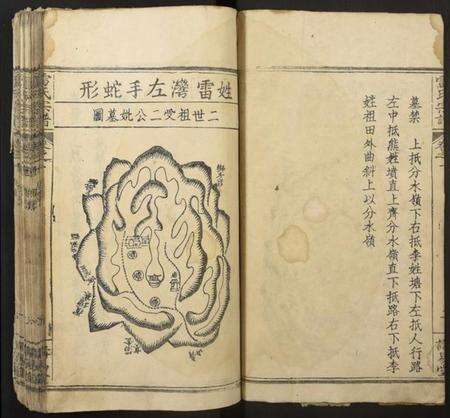 墓禁　上抵分水嶺下右抵李姓塘下左抵人行路
左中抵熊姓墳直上齊分水嶺直下抵路右下抵李
姓祖田外曲斜上以分水嶺
姓雷灣左手蛇形
二世祖受二公妣墓圖